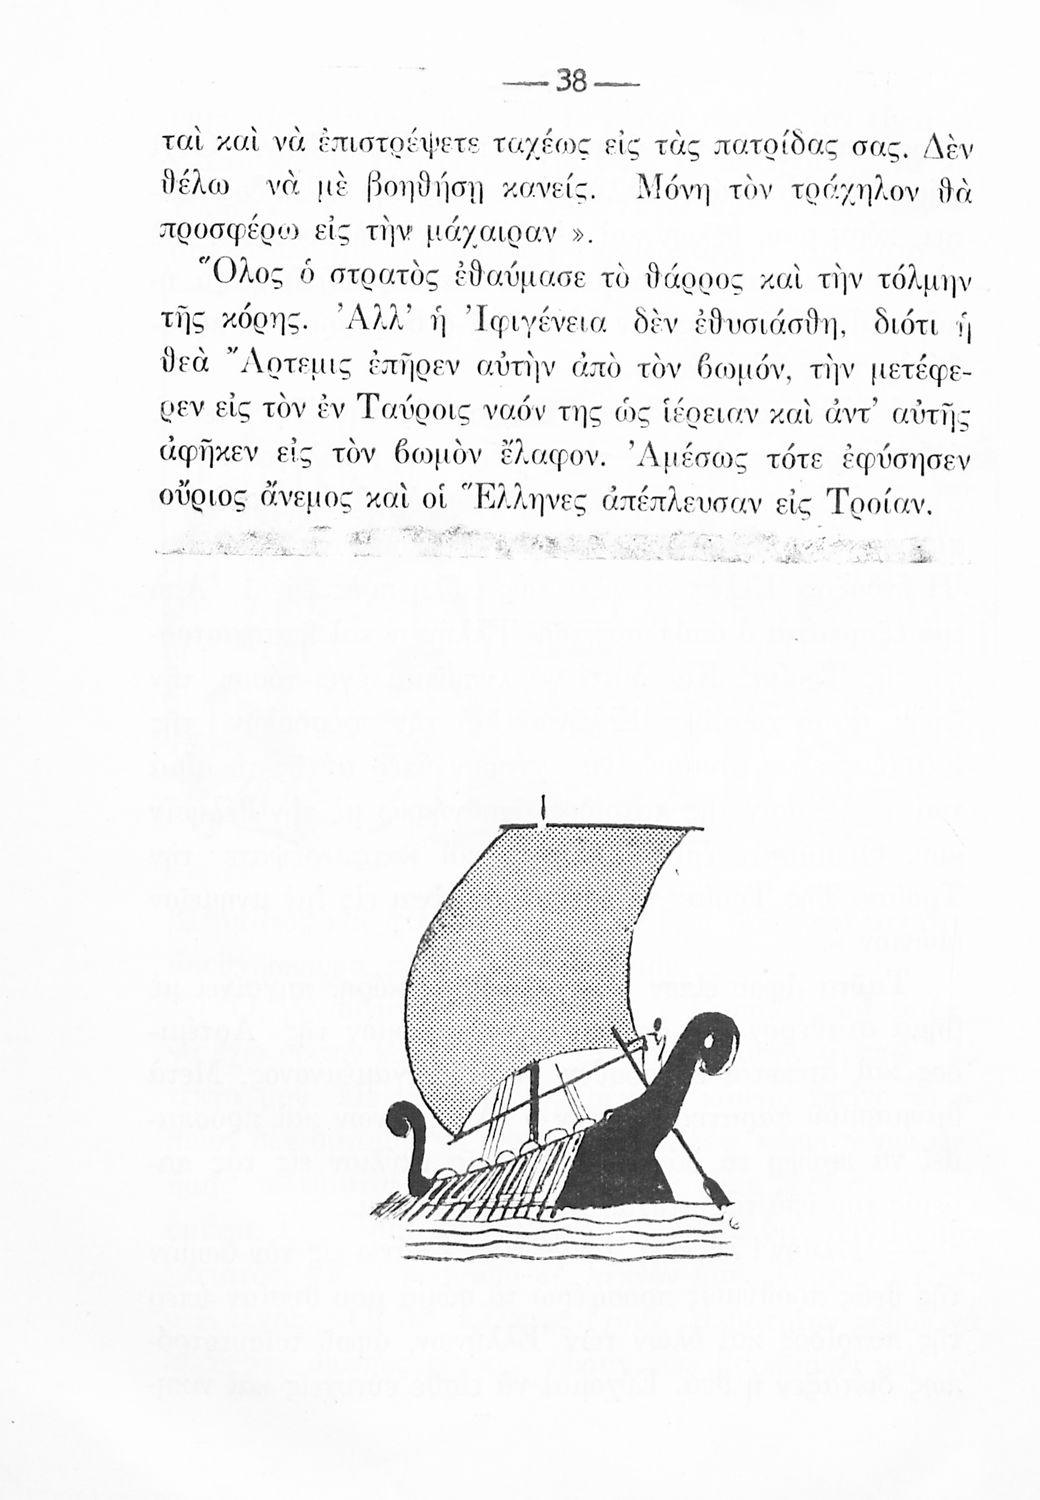 — 38 —
ταὶ καὶ νὰ ἐπιστρέψετε ταχέως εἰς τὰς πατρίδας σας. Δὲν
θέλω νὰ μὲ βοηθήσῃ κανείς. Μόνη τὸν τράχηλον θὰ
προσφέρω εἰς τὴν μάχαιραν ».
Ὅλος ὁ στρατὸς ἐθαύμασε τὸ θάρρος καὶ τὴν τόλμην
τῆς κόρης. Ἀλλ' ἡ Ἰφιγένεια δὲν ἐθυσιάσθη, διότι ἡ
θεὰ Ἄρτεμις ἐπῆρεν αὐτὴν ἀπὸ τὸν βωμόν, τὴν μετέφε-
ρεν εἰς τὸν ἐν Ταύροις ναόν της ὡς ἱέρειαν καὶ ἀντ' αὐτῆς
ἀφῆκεν εἰς τὸν βωμὸν ἔλαφον. Ἀμέσως τότε ἐφύσησεν
οὔριος ἄνεμος καὶ οἱ Ἕλληνες ἀπέπλευσαν εἰς Τροίαν.